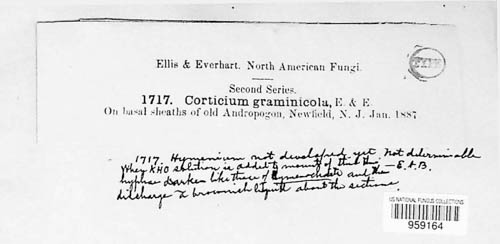 Ellis & Everhart. North American Fungi.
Second Series.
1717. Corticium graminicola, E. & E
On basal sheaths of old Andropogon, Newfield, N. J. Jan. 1887
1717. Hymenium not developed yet. Not determinable
When KHO solution is added to mounts of this the — E.A.B.
hyphae darken like those of Hymenochaete and the
discharge a brownish liquid about the sections.
US NATIONAL FUNGUS COLLECTIONS
959164